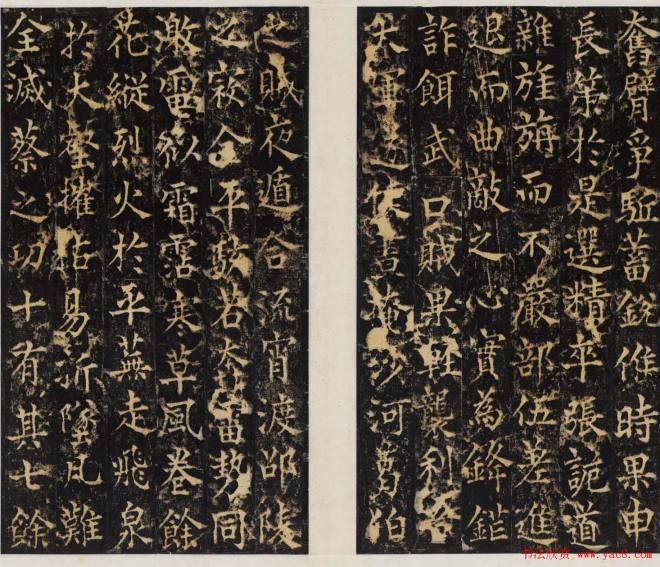 奮臂爭駈蓄銳俟時果申
長策於是選精卒張詭道
雜旌旃而不嚴部伍差進
退而曲敵之心實為鋒鎧
詐餌武口賊果輕襲利
軍沙河葛伯
賊夜遁合流宵渡邵陵
之令平若奔雷勢同
激電欲霜霑寒草風卷餘
花縱烈火於平蕪走飛泉
於大壑摧枯易折墜凡難
全滅蔡之功十有其七餘
书法欣赏 www.yac8.com